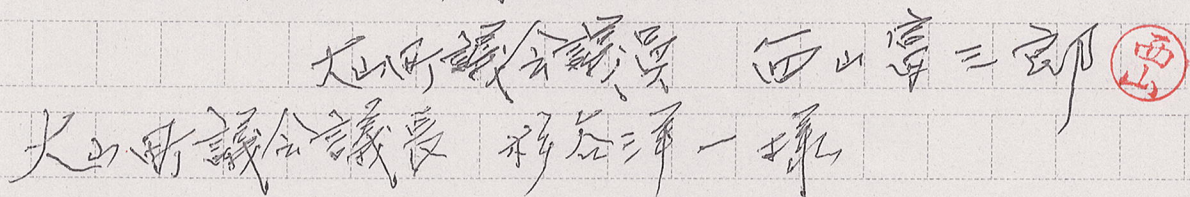 大山町議会議員 西山富三郎 西山
大山町議会議長 杉谷洋一様